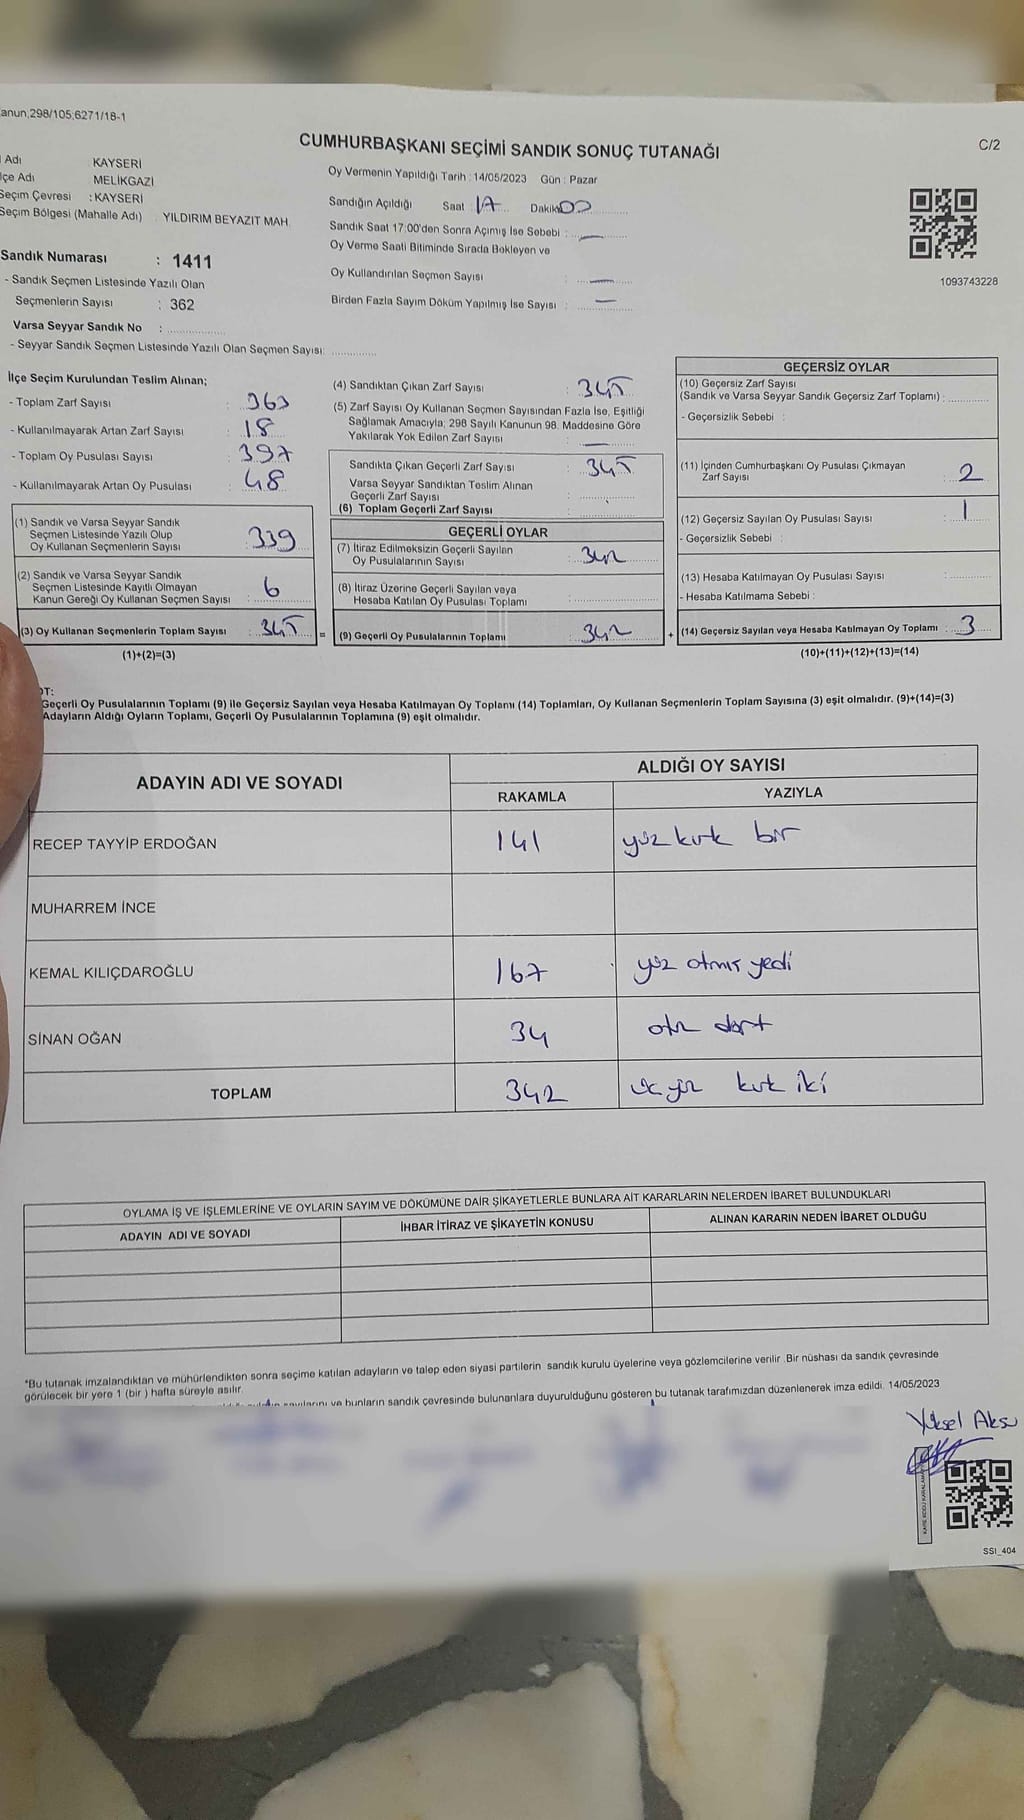 anun;298/105;6271/18-1
CUMHURBAŞKANI SEÇİMİ SANDIK SONUÇ TUTANAĞI
C/2
Adı KAYSERİ
lçe Adı MELİKGAZİ
Seçim Çevresi : KAYSERİ
Seçim Bölgesi (Mahalle Adı) YILDIRIM BEYAZIT MAH.
Sandık Numarası : 1411
- Sandık Seçmen Listesinde Yazılı Olan
Seçmenlerin Sayısı : 362
Varsa Seyyar Sandık No :
- Seyyar Sandık Seçmen Listesinde Yazılı Olan Seçmen Sayısı:
Oy Vermenin Yapıldığı Tarih : 14/05/2023 Gün : Pazar
Sandığın Açıldığı Saat 17 Dakika 00
Sandık Saat 17:00'den Sonra Açımış İse Sebebi : —
Oy Verme Saati Bitiminde Sırada Bekleyen ve
Oy Kullandırılan Seçmen Sayısı : —
Birden Fazla Sayım Döküm Yapılmış İse Sayısı : —
1093743228
İlçe Seçim Kurulundan Teslim Alınan;
- Toplam Zarf Sayısı : 363
- Kullanılmayarak Artan Zarf Sayısı : 18
- Toplam Oy Pusulası Sayısı : 397
- Kullanılmayarak Artan Oy Pusulası : 48
(1) Sandık ve Varsa Seyyar Sandık
Seçmen Listesinde Yazılı Olup
Oy Kullanan Seçmenlerin Sayısı : 339
(2) Sandık ve Varsa Seyyar Sandık
Seçmen Listesinde Kayıtlı Olmayan
Kanun Gereği Oy Kullanan Seçmen Sayısı : 6
(3) Oy Kullanan Seçmenlerin Toplam Sayısı : 345
(1)+(2)=(3)
(4) Sandıktan Çıkan Zarf Sayısı : 345
(5) Zarf Sayısı Oy Kullanan Seçmen Sayısından Fazla İse, Eşitliği
Sağlamak Amacıyla; 298 Sayılı Kanunun 98. Maddesine Göre
Yakılarak Yok Edilen Zarf Sayısı : —
Sandıkta Çıkan Geçerli Zarf Sayısı : 345
Varsa Seyyar Sandıktan Teslim Alınan
Geçerli Zarf Sayısı :
(6) Toplam Geçerli Zarf Sayısı :
GEÇERLİ OYLAR
(7) İtiraz Edilmeksizin Geçerli Sayılan
Oy Pusulalarının Sayısı : 342
(8) İtiraz Üzerine Geçerli Sayılan veya
Hesaba Katılan Oy Pusulası Toplamı :
= (9) Geçerli Oy Pusulalarının Toplamı : 342
GEÇERSİZ OYLAR
(10) Geçersiz Zarf Sayısı
(Sandık ve Varsa Seyyar Sandık Geçersiz Zarf Toplamı) :
- Geçersizlik Sebebi :
(11) İçinden Cumhurbaşkanı Oy Pusulası Çıkmayan
Zarf Sayısı : 2
(12) Geçersiz Sayılan Oy Pusulası Sayısı : 1
- Geçersizlik Sebebi :
(13) Hesaba Katılmayan Oy Pusulası Sayısı :
- Hesaba Katılmama Sebebi :
+ (14) Geçersiz Sayılan veya Hesaba Katılmayan Oy Toplamı : 3
(10)+(11)+(12)+(13)=(14)
OT:
Geçerli Oy Pusulalarının Toplamı (9) ile Geçersiz Sayılan veya Hesaba Katılmayan Oy Toplamı (14) Toplamları, Oy Kullanan Seçmenlerin Toplam Sayısına (3) eşit olmalıdır. (9)+(14)=(3)
Adayların Aldığı Oyların Toplamı, Geçerli Oy Pusulalarının Toplamına (9) eşit olmalıdır.
ADAYIN ADI VE SOYADI
ALDIĞI OY SAYISI
RAKAMLA YAZIYLA
RECEP TAYYİP ERDOĞAN 141 yüz kırk bir
MUHARREM İNCE
KEMAL KILIÇDAROĞLU 167 yüz atmış yedi
SİNAN OĞAN 34 otuz dört
TOPLAM 342 üç yüz kırk iki
OYLAMA İŞ VE İŞLEMLERİNE VE OYLARIN SAYIM VE DÖKÜMÜNE DAİR ŞİKAYETLERLE BUNLARA AİT KARARLARIN NELERDEN İBARET BULUNDUKLARI
ADAYIN ADI VE SOYADI İHBAR İTİRAZ VE ŞİKAYETİN KONUSU ALINAN KARARIN NEDEN İBARET OLDUĞU
*Bu tutanak imzalandıktan ve mühürlendikten sonra seçime katılan adayların ve talep eden siyasi partilerin sandık kurulu üyelerine veya gözlemcilerine verilir. Bir nüshası da sandık çevresinde
görülecek bir yere 1 (bir ) hafta süreyle asılır.
ve bunların sandık çevresinde bulunanlara duyurulduğunu gösteren bu tutanak tarafımızdan düzenlenerek imza edildi. 14/05/2023
Yüksel Aksu
SSI_404